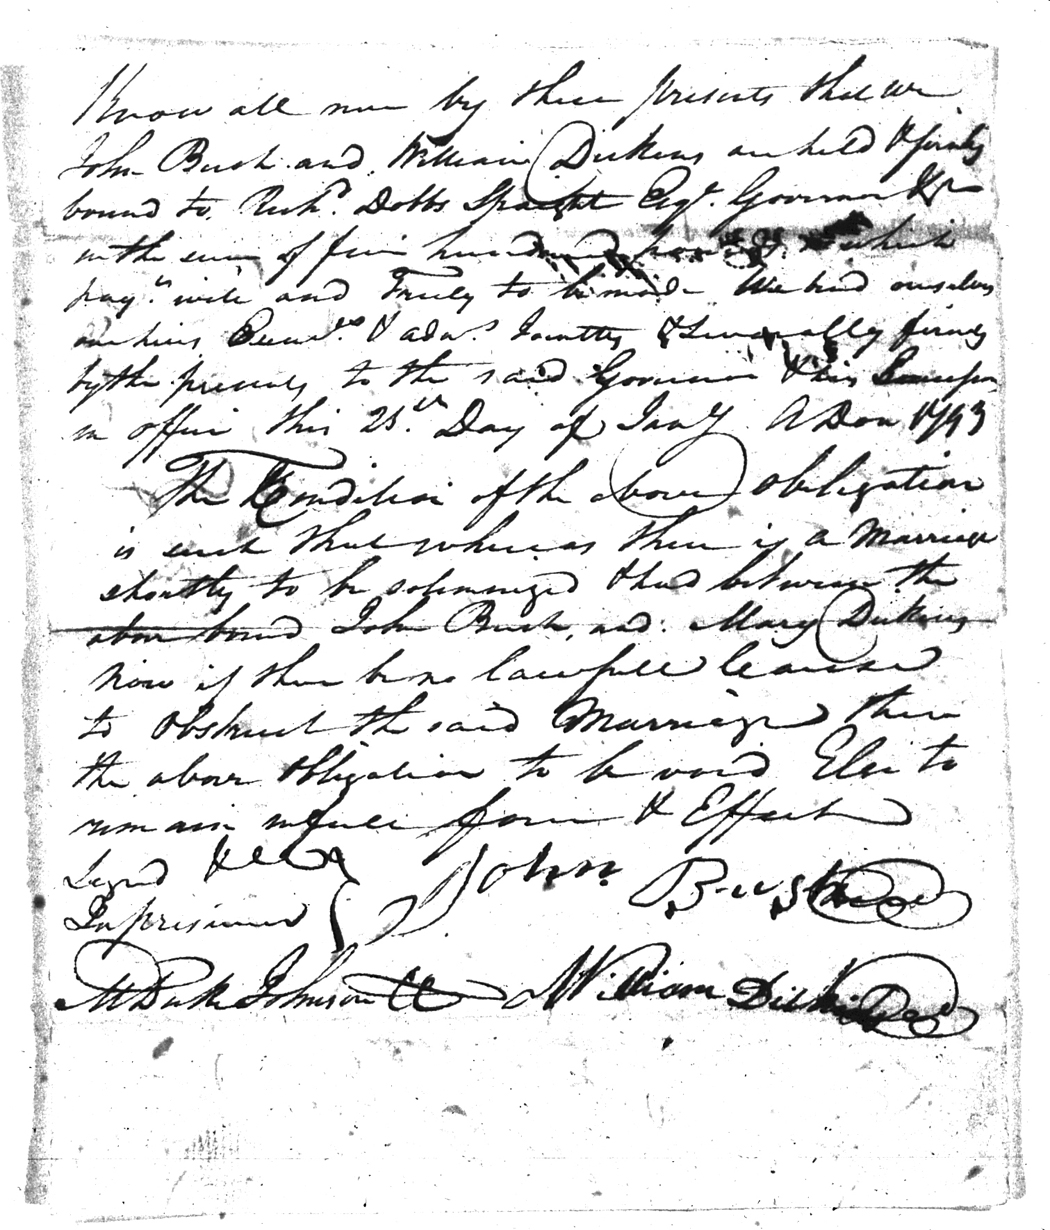 Know all men by these presents that we
John Bush and William Dickens are held & firmly
bound to Richd. Dobbs Spaight Esqr. Governor &c
in the sum of five hundred pounds to which
paymt. well and Truly to be made We bind ourselves
our heirs Execrs. & admrs. Jointly & Severally firmly
by these presents to the said Governor & his Successors
in office this 25th Day of Jany A Dom 1793
The Condition of the above obligation
is such that whereas there is a Marriage
shortly to be solemnized & had between the
above bound John Bush, and Mary Dickens
Now if there be no lawfull Cause
to obstruct the said Marriage then
the above obligation to be void Else to
remain in full force & Effect
Signd &c
In presence
John Bush
M Duke Johnson CC
William Dickens